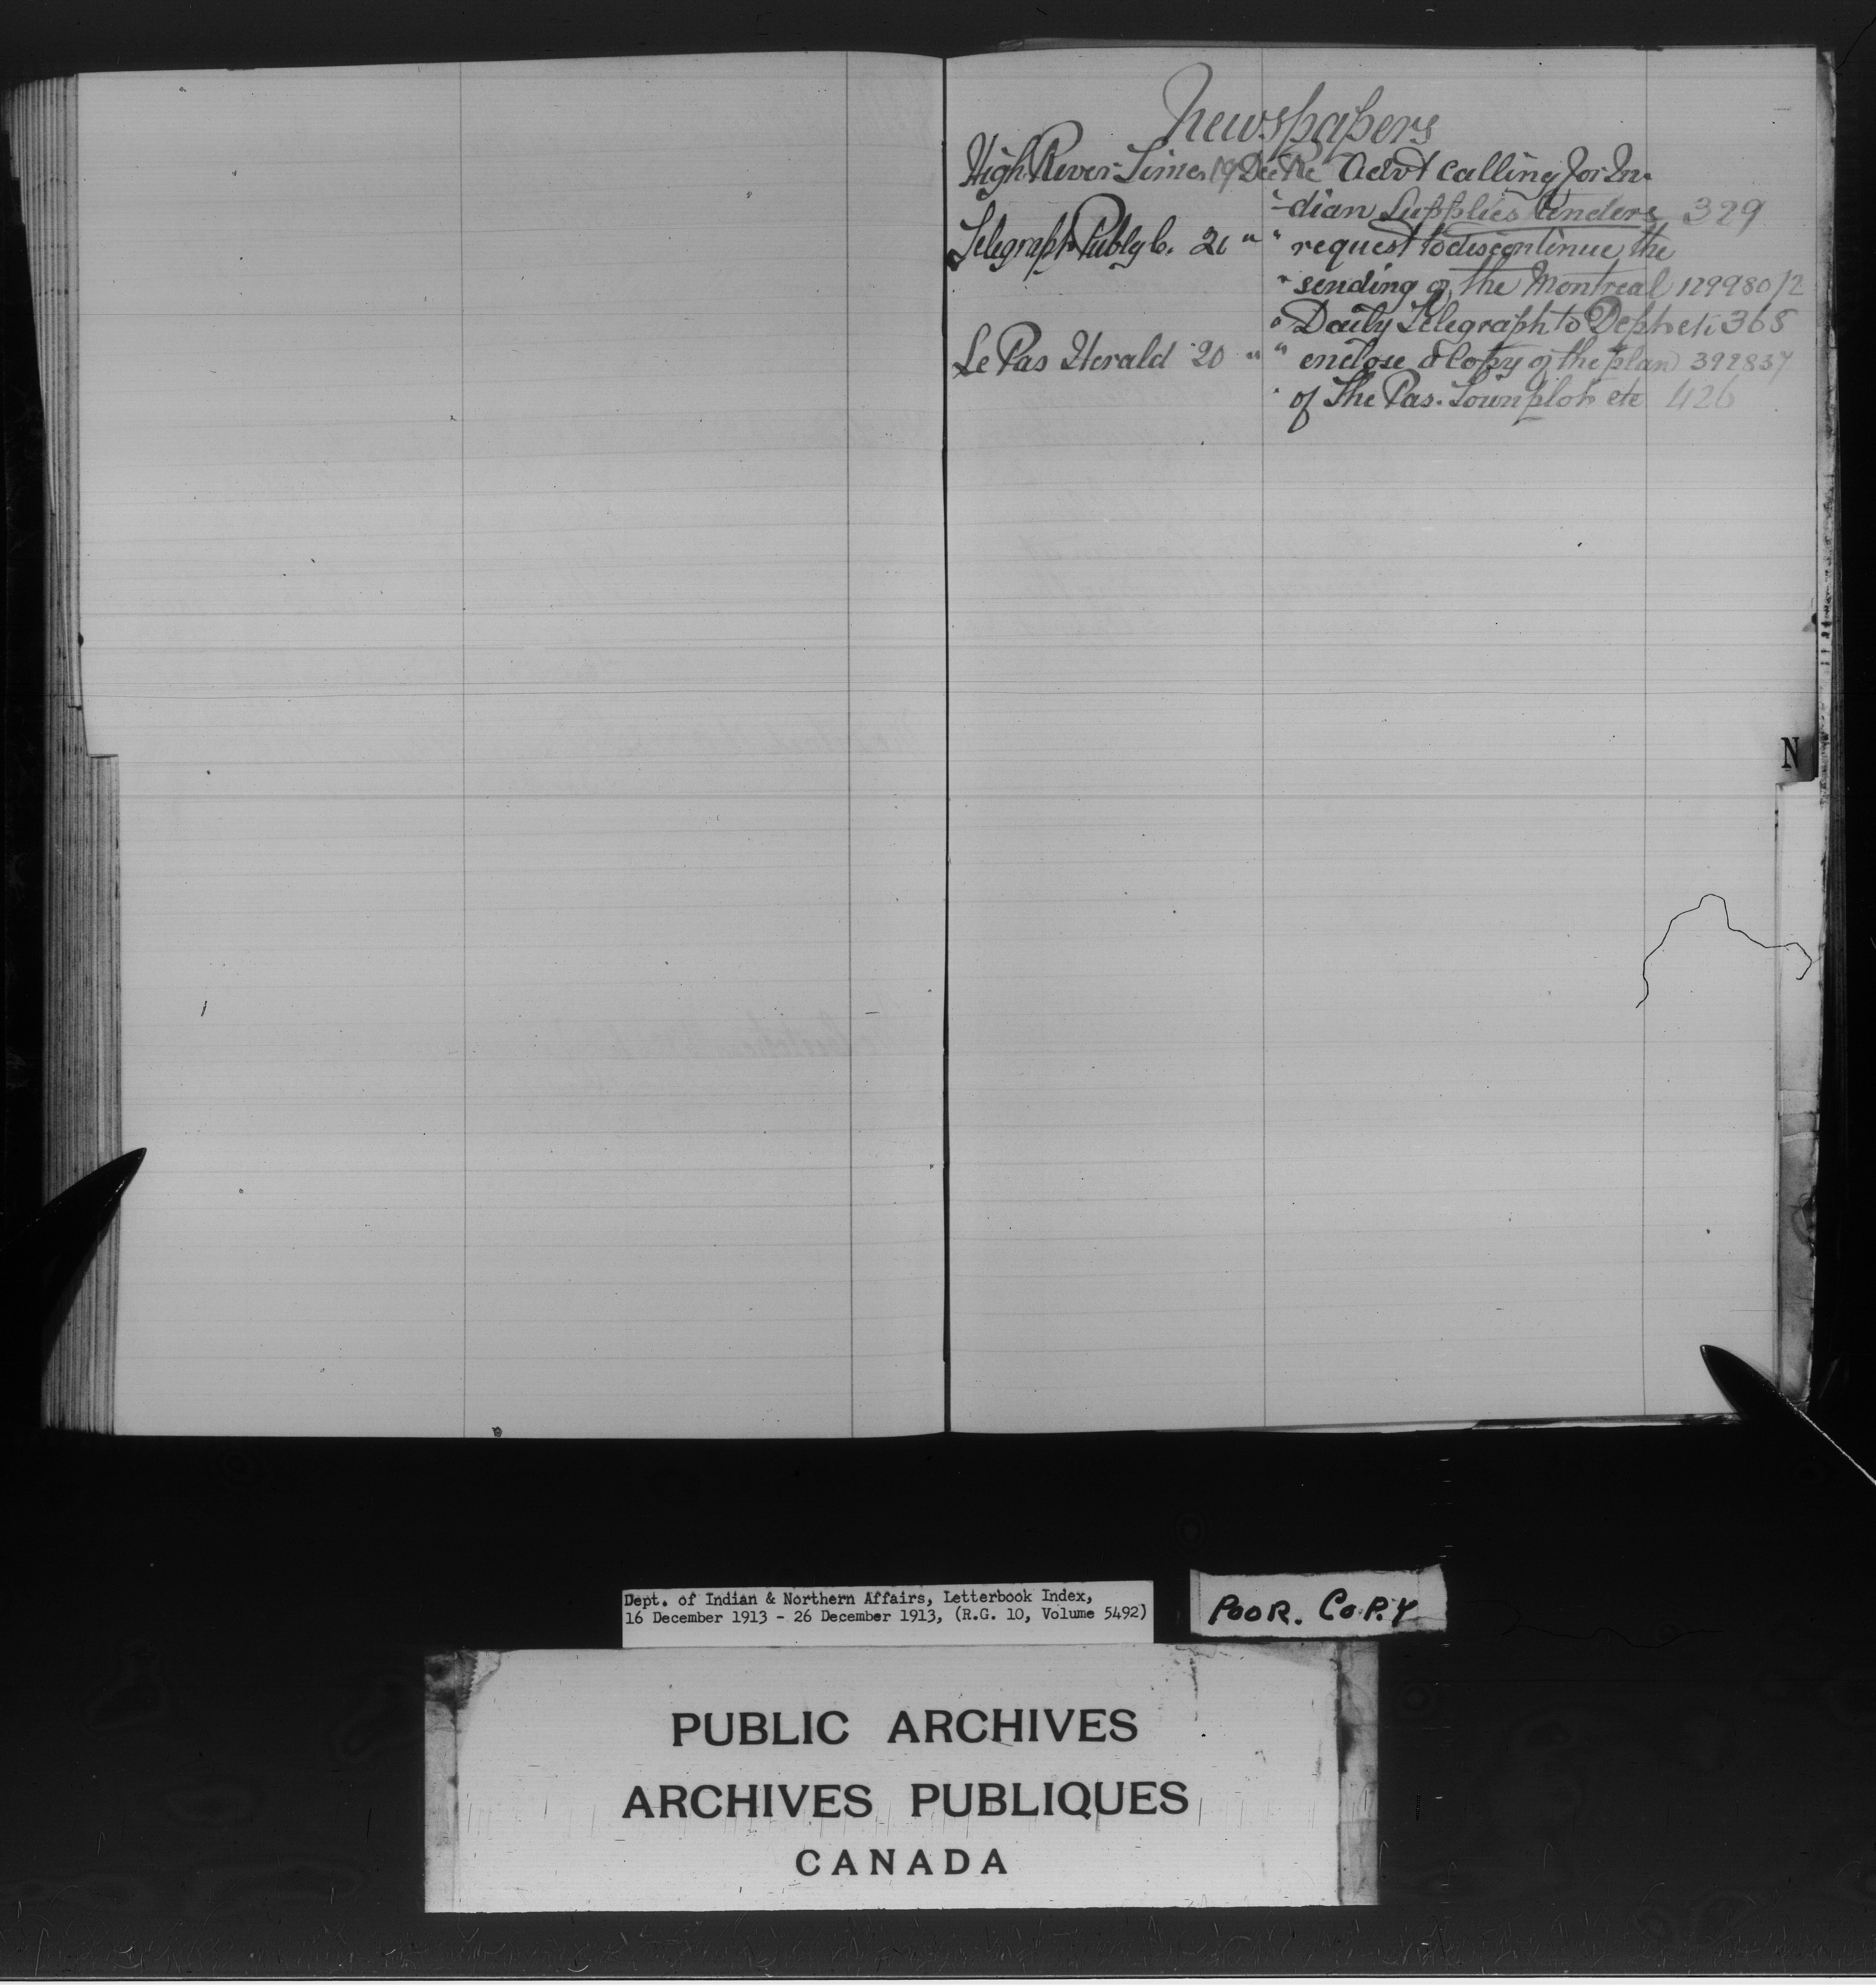 Newspapers
High River Times 19 Dec Re Advt calling for In-
-dian Supplies tenders 329
Telegraph Publg Co. 20 " " request to discontinue the
" sending of the Montreal 129980/2
" Daily Telegraph to Dept etc 368
Le Pas Herald 20 " " enclose a Copy of the plan 392837
" of The Pas Townplot etc 426
N
Dept. of Indian & Northern Affairs, Letterbook Index,
16 December 1913 - 26 December 1913, (R.G. 10, Volume 5492)
POOR. COPY
PUBLIC ARCHIVES
ARCHIVES PUBLIQUES
CANADA